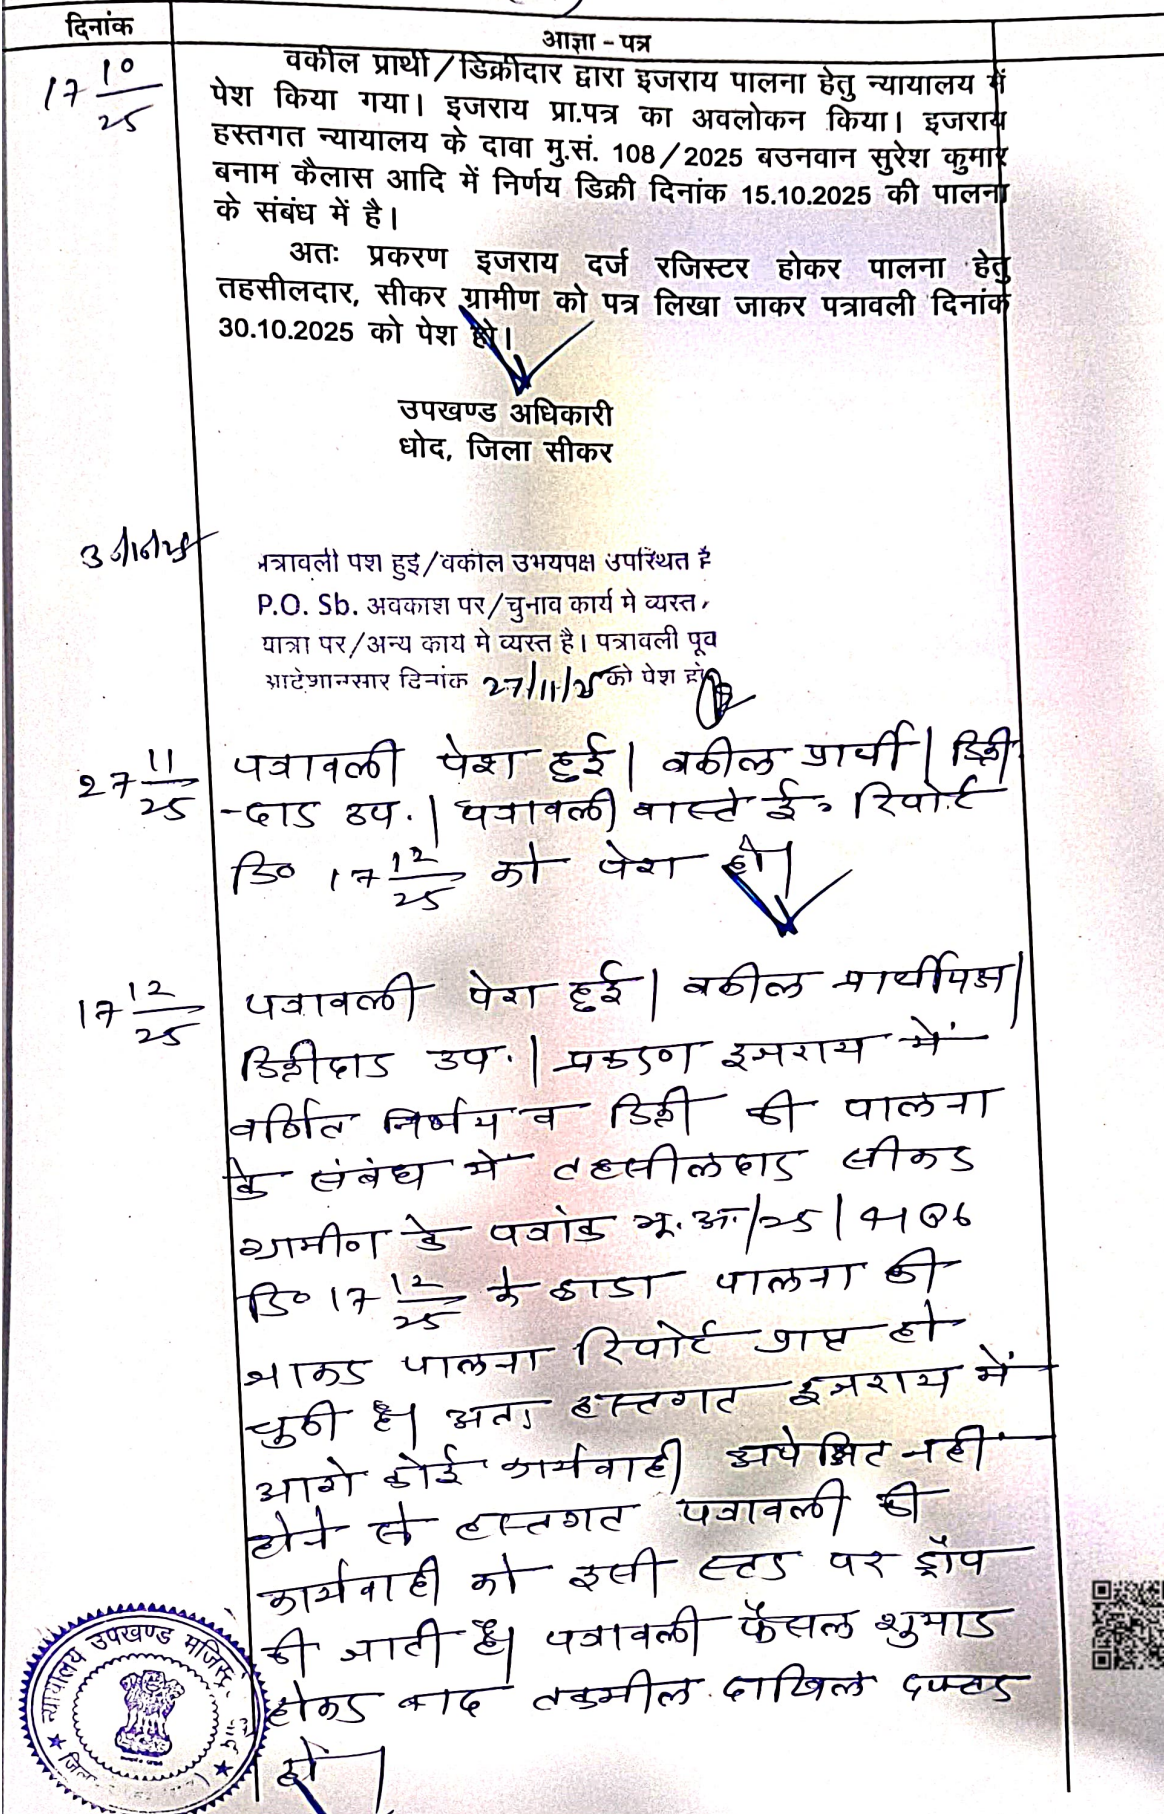 दिनांक
आज्ञा - पत्र
17 10/25
वकील प्रार्थी/डिक्रीदार द्वारा इजराय पालना हेतु न्यायालय में
पेश किया गया। इजराय प्रा.पत्र का अवलोकन किया। इजराय
हस्तगत न्यायालय के दावा मु.सं. 108/2025 बउनवान सुरेश कुमार
बनाम कैलास आदि में निर्णय डिक्री दिनांक 15.10.2025 की पालना
के संबंध में है।
अतः प्रकरण इजराय दर्ज रजिस्टर होकर पालना हेतु
तहसीलदार, सीकर ग्रामीण को पत्र लिखा जाकर पत्रावली दिनांक
30.10.2025 को पेश हो।
उपखण्ड अधिकारी
धोद, जिला सीकर
पत्रावली पेश हुई/वकील उभयपक्ष उपस्थित है
P.O. Sb. अवकाश पर/चुनाव कार्य मे व्यस्त,
यात्रा पर/अन्य कार्य मे व्यस्त है। पत्रावली पूर्व
आदेशानुसार दिनांक 27/11/25 को पेश हो
27 11/25
पत्रावली पेश हुई। वकील प्रार्थी। डिक्री
-दार उप.। पत्रावली वास्ते ई॰ रिपोर्ट
दि० 17 12/25 को पेश हो।
17 12/25
पत्रावली पेश हुई। वकील प्रार्थीपक्ष।
डिक्रीदार उप.। प्रकरण इजराय में
वर्णित निर्णय व डिक्री की पालना
के संबंध में तहसीलदार सीकर
ग्रामीण के पत्रांक भू.अ./25/4106
दि० 17 12/25 के द्वारा पालना की
जाकर पालना रिपोर्ट प्राप्त हो
चुकी है। अतः हस्तगत इजराय में
आगे कोई कार्यवाही अपेक्षित नहीं
होने से हस्तगत पत्रावली की
कार्यवाही को इसी स्तर पर ड्रॉप
की जाती है। पत्रावली फैसल शुमार
होकर बाद तकमील दाखिल दफ्तर
हो।
न्यायालय उपखण्ड मजिस्ट्रे
जिला